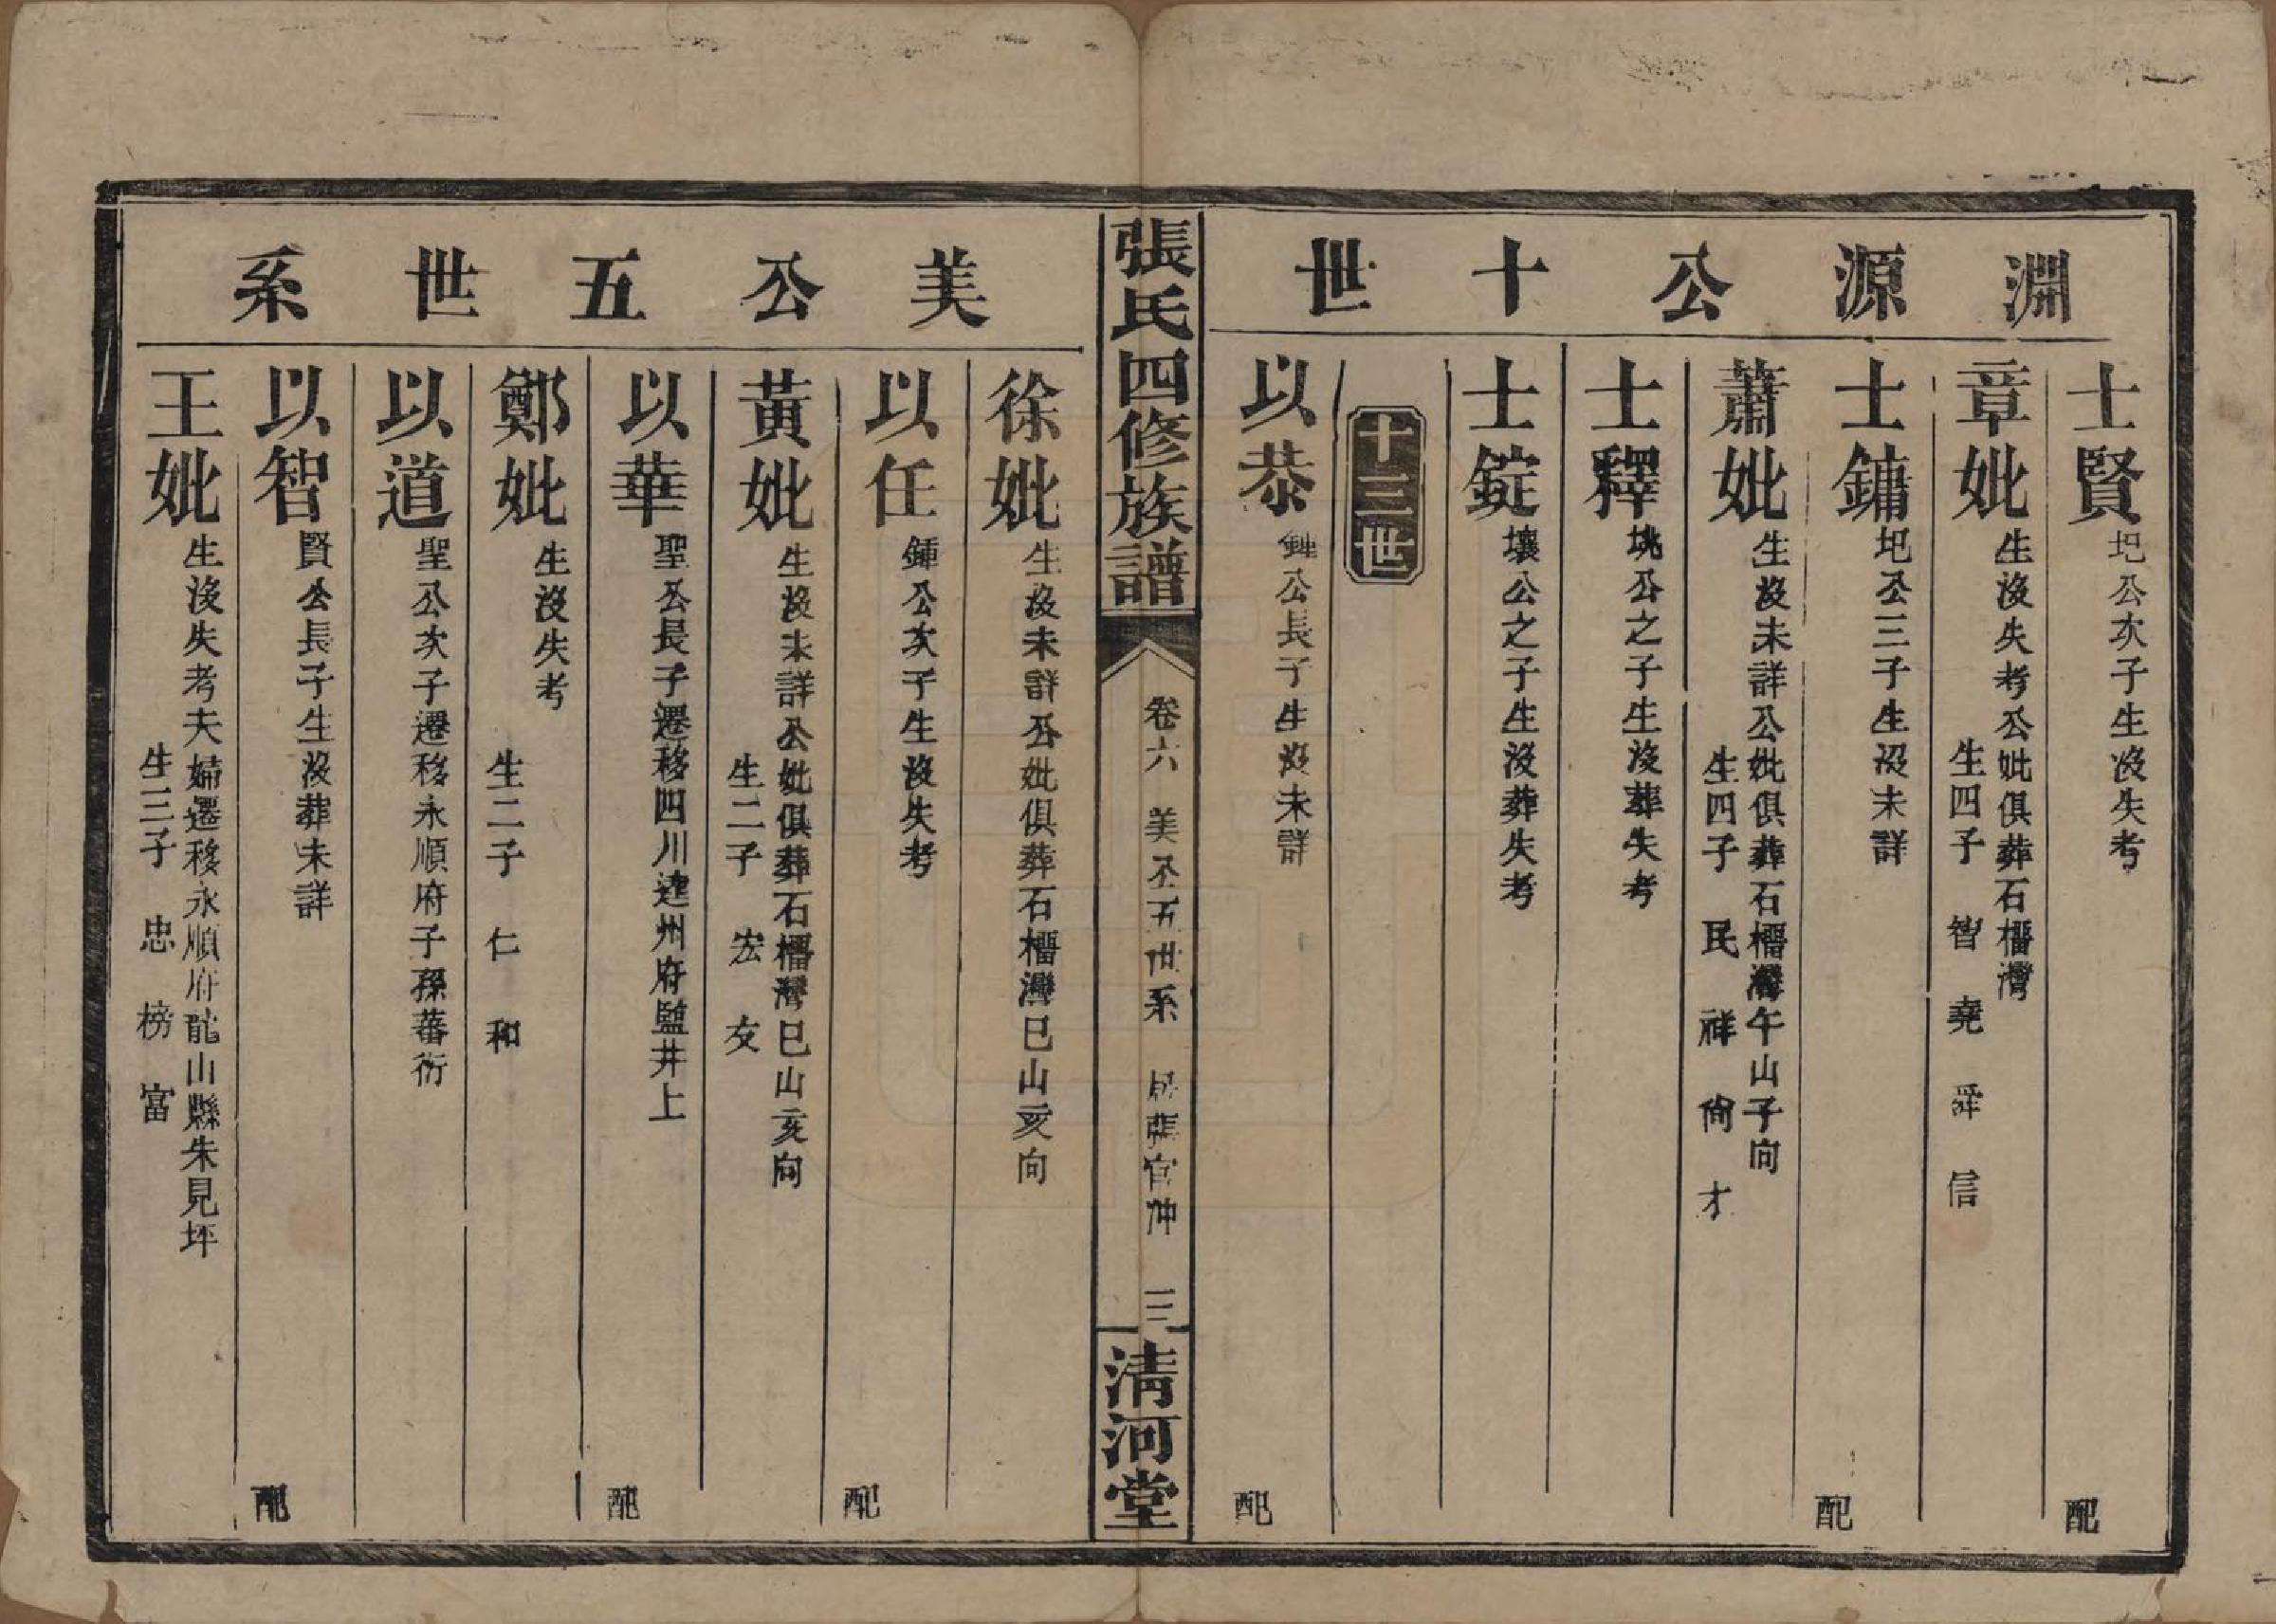 淵源公十世
士賢 圯公次子生沒失考 配
章妣 生沒失考公妣俱葬石橊灣
生四子 智 堯 舜 信
士鏞 圯公三子生沒未詳 配
蕭妣 生沒未詳公妣俱葬石橊灣午山子向
生四子 民 祥 尙 才
士釋 垗公之子生沒葬失考
士錠 壤公之子生沒葬失考
十三世
以恭 鍾公長子生沒未詳 配
張氏四修族譜 卷六 美公五世系 居張官冲 三 淸河堂
美公五世系
徐妣 生沒未詳公妣俱葬石橊灣巳山亥向
以任 鍾公次子生沒失考 配
黃妣 生沒未詳公妣俱葬石橊灣巳山亥向
生二子 宏 友
以華 聖公長子遷移四川達州府監井上 配
鄭妣 生沒失考
生二子 仁 和
以道 聖公次子遷移永順府子孫蕃衍
以智 賢公長子生沒葬未詳 配
王妣 生沒失考夫婦遷移永順府龍山縣朱見坪
生三子 忠 榜 富